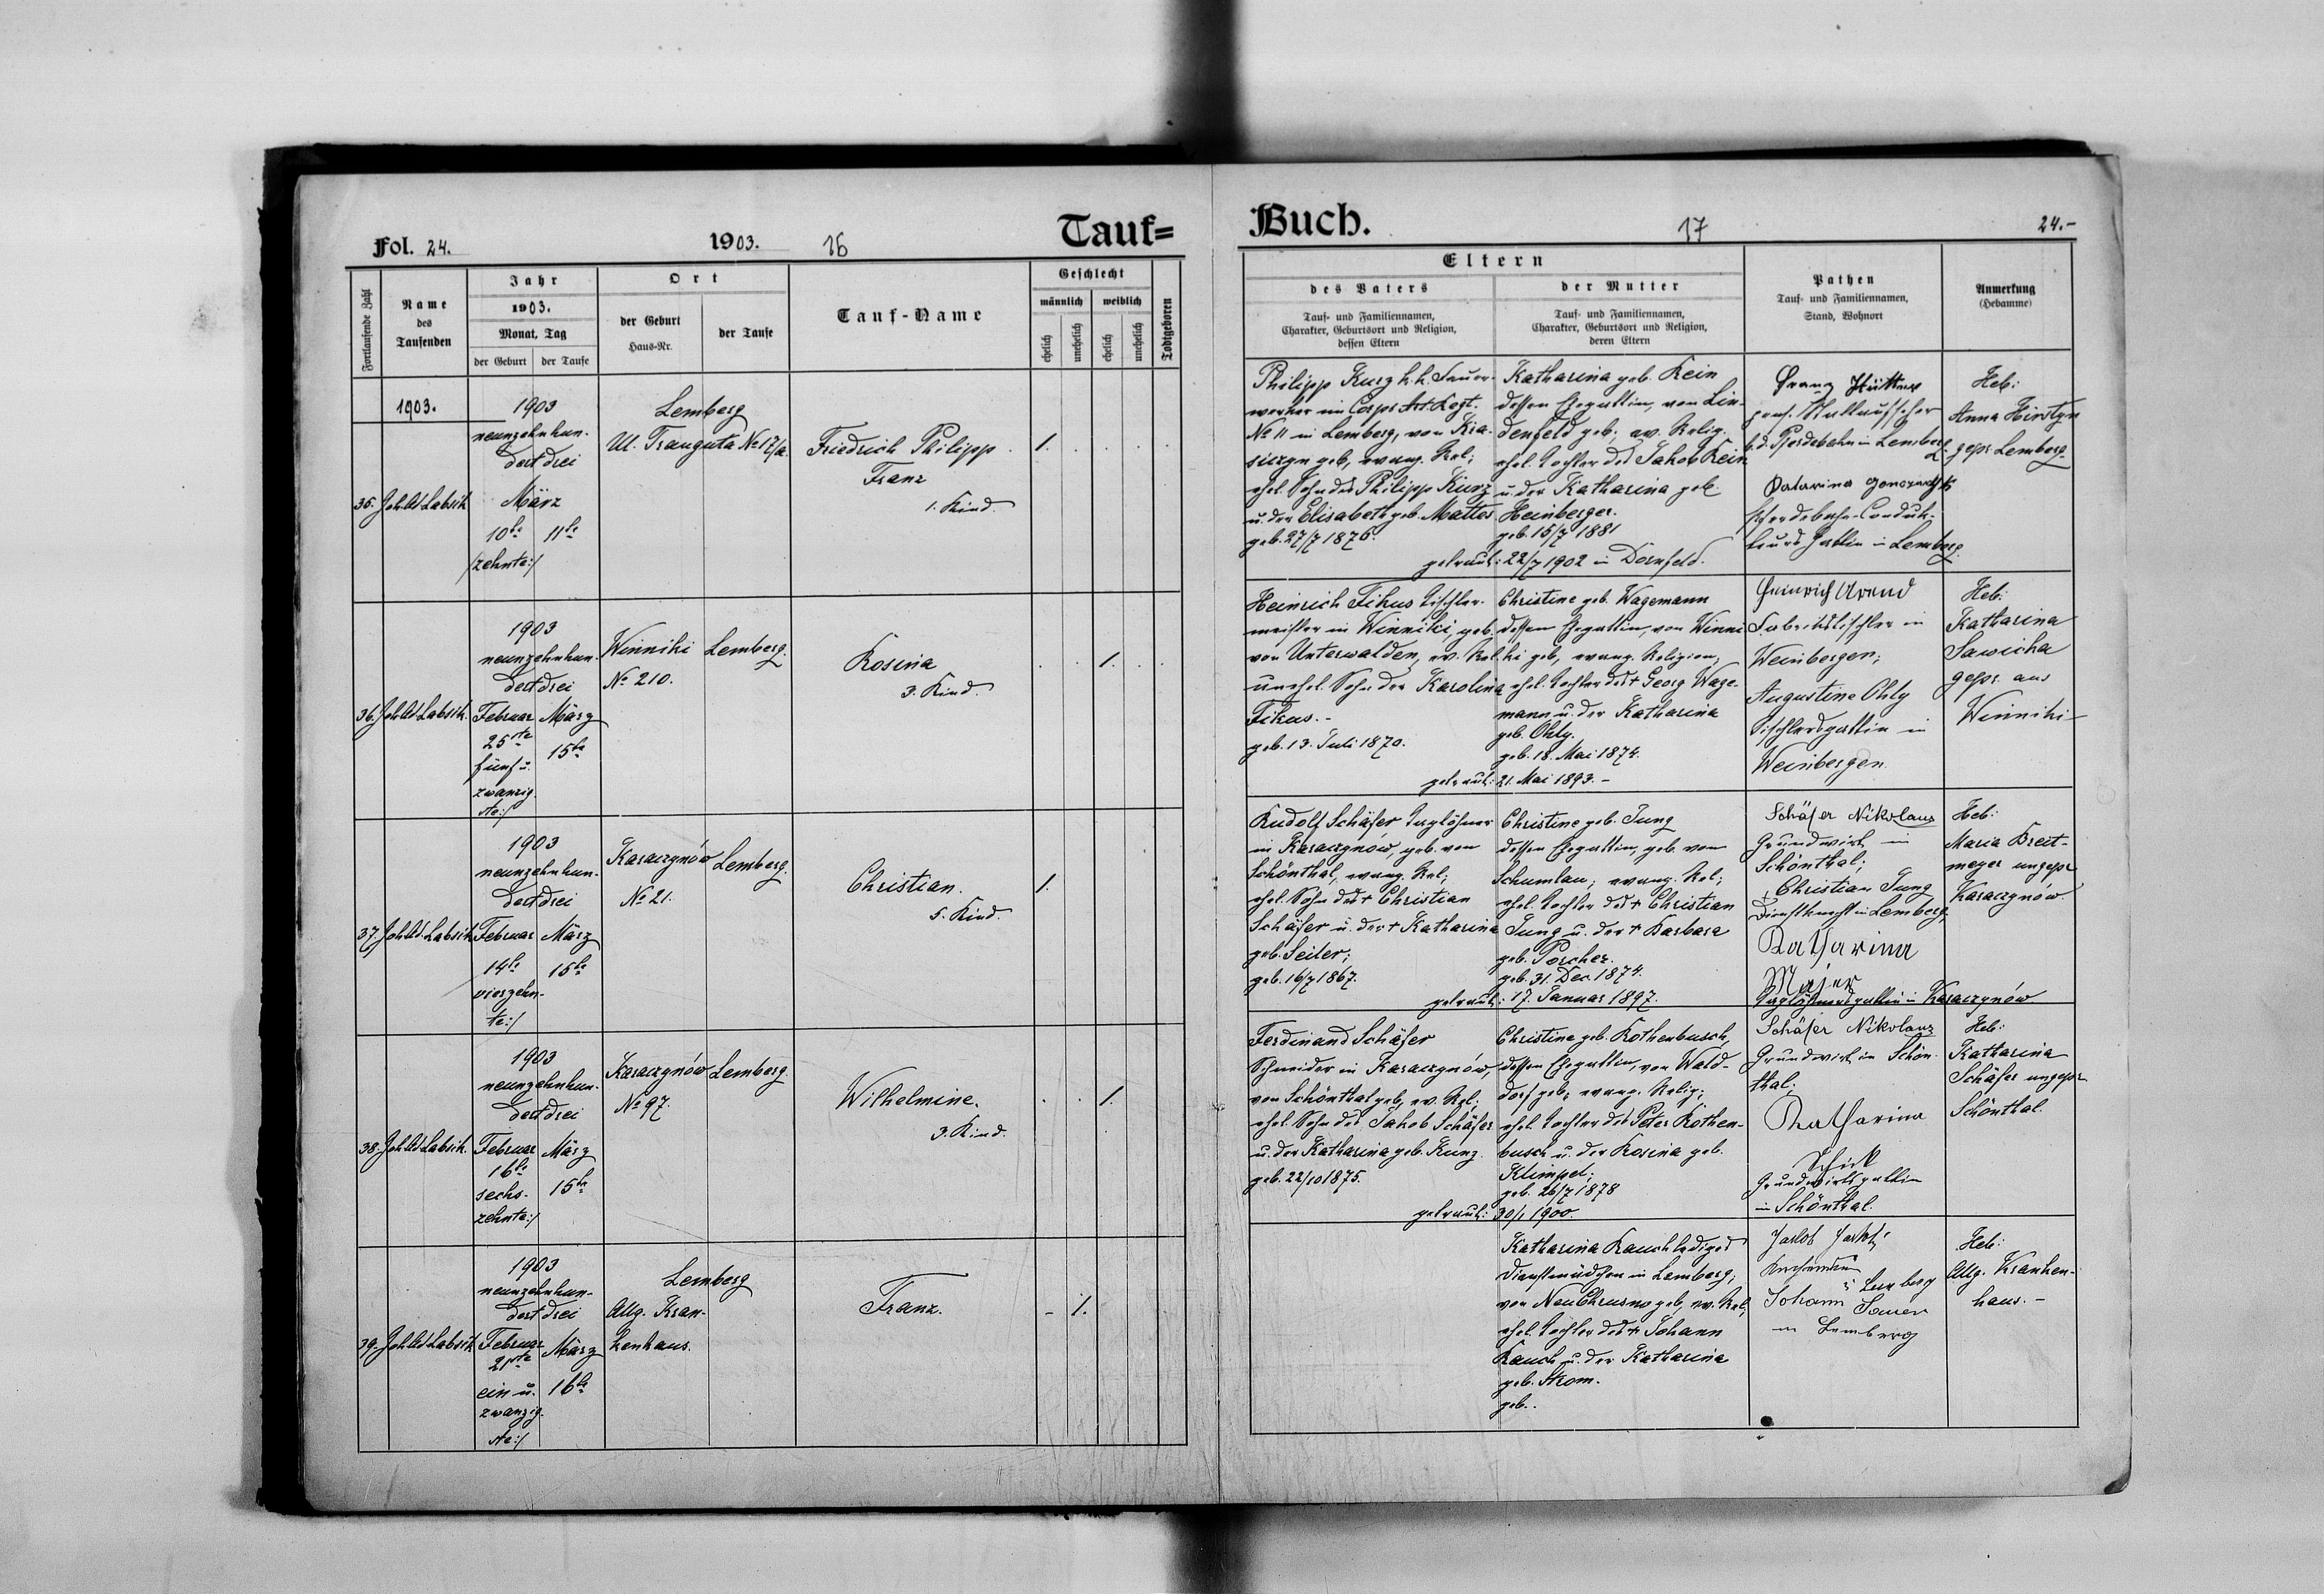 Fol. 24.
1903.
16
Tauf=
Fortlaufende Zahl
Name
des
Taufenden
Jahr
1903.
Monat, Tag
der Geburt
der Taufe
Ort
der Geburt
Haus-Nr.
der Taufe
Tauf-Name
Geschlecht
männlich
weiblich
ehelich
unehelich
ehelich
unehelich
Todtgeboren
1903.
35. Joh. Ad. Labsik
1903
neunzehnhun-
dert drei
März
10te 11te
/zehnte:/
Lemberg
Ul. Trauguta No 17/a.
Friedrich Philipp
Franz
1. Kind.
1.
36. Joh. Ad. Labsik.
1903
neunzehnhun-
dert drei
Februar März
25ste 15te
fünf u.
zwanzig-
ste:/
Winniki Lemberg.
No 210.
Rosina
3. Kind.
1.
37. Joh. Ad. Labsik
1903
neunzehnhun-
dert drei
Februar März
14te 15te
vierzehn-
te:/
Karaczynów Lemberg.
No 21.
Christian.
5. Kind.
1.
38. Joh. Ad. Labsik.
1903
neunzehnhun-
dert drei
Februar März
16te 15te
sechs-
zehnte:/
Karaczynów Lemberg.
No 97.
Wilhelmine.
3. Kind.
1.
39. Joh. Ad. Labsik
1903
neunzehnhun-
dert drei
Februar März
21ste 16te
ein u.
zwanzig-
ste:/
Lemberg
Allg. Kran-
kenhaus.
Franz.
- 1.
Buch.
17
24.-
Eltern
des Vaters
Tauf- und Familiennamen,
Charakter, Geburtsort und Religion,
dessen Eltern
der Mutter
Tauf- und Familiennamen,
Charakter, Geburtsort und Religion,
deren Eltern
Pathen
Tauf- und Familiennamen,
Stand, Wohnort
Anmerkung
(Hebamme)
Philipp Kurz k. k. Feuer-
werker im Corps Art. Regt.
No 11 in Lemberg, von
geb, evang. Rel;
ehel. Sohn des Philipp Kurz
u. der Elisabeth geb. Mattes
geb. 27/7 1876.
Katharina geb. Rein
dessen Ehegattin, von Lin-
denfeld geb, ev. Relig.
ehel. Tochter des Jakob Rein
u. der Katharina geb.
Heinberger.
geb. 15/7 1881
getraut: 22/7 1902 in Dornfeld.
Franz Hüttner
b. d. Pferdebahn in Lemberg
Pferdebahn-Conduk-
teurs Gattin in Lemberg.
Heb:
Anna Hirotyn
gepr. Lemberg.
Heinrich Fikus Tischler-
meister in Winniki, geb.
von Unterwalden, ev. Rel
unehel. Sohn der Karolina
Fikus.-
geb. 13. Juli 1870.
Christine geb. Wagemann
dessen Ehegattin, von Winni-
ki geb, evang. Religion,
ehel. Tochter des + Georg Wage-
mann u. der Katharina
geb. Ohly.
geb. 18. Mai 1874.
getraut: 21. Mai 1893.-
Heinrich Arend
Fabrikstischler in
Weinbergen;
Augustine Ohly
Tischlersgattin in
Weinbergen.
Heb:
Katharina
Sawicka
gepr. aus
Winniki-
Rudolf Schäfer Taglöhner
in Karaczynów, geb. von
Schönthal, evang. Rel;
ehel. Sohn des + Christian
Schäfer u. der + Katharina
geb. Seiler;
geb. 16/7 1867.
Christine geb. Jung
dessen Ehegattin, geb. von
Schumlau; evang. Rel;
ehel. Tochter des + Christian
Jung u. der + Barbara
geb. Porcher.
geb. 31. Dec. 1874.
getraut: 17. Januar 1897.
Schäfer Nikolaus
Grundwirt in
Schönthal;
Christian Jung
Dienstknecht in Lemberg,
Katharina
Majer
Taglöhnersgattin in Karaczynów
Heb:
Maria Breit-
meyer ungepr
Karaczynów.
Ferdinand Schäfer
Schneider in Karaczynów,
von Schönthal geb, ev. Rel;
ehel. Sohn des Jakob Schäfer
u. der Katharina geb. Kunz.
geb. 22/10 1875.
Christine geb. Rothenbusch,
dessen Ehegattin, von Wald-
dorf geb; evang. Relig;
ehel. Tochter des Peter Rothen-
busch u. der Rosina geb.
Klimpel;
geb. 26/7 1878
getraut: 30/1 1900.
Schäfer Nikolaus
Grundwirt in Schön-
thal;
Katharina
Schick
Grundwirtsgattin
in Schönthal.
Heb:
Katharina
Schäfer ungepr
Schönthal.
Katharina Rauch lediges
Dienstmädchen in Lemberg;
von Neu Chrusno geb, ev. Rel;
ehel. Tochter des + Johann
Rauch u. der Katharina
geb. Strom.
geb..
Jakob
Lemberg
Johann Sauer
in Lemberg
Heb:
Allg. Kranken-
haus.-